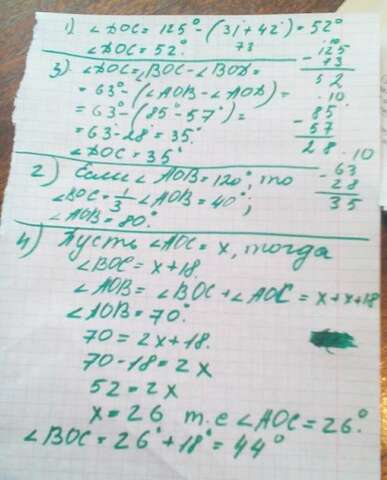 1) ∠DOC = 125° - (31 + 42°) = 52°
73
∠DOC = 52°.
125
- 73
52
3) ∠DOC = ∠BOC - ∠BOD =
= 63° - (∠AOB - ∠AOD) =
= 63° - (85° - 57°) =
= 63 - 28 = 35°.
∠DOC = 35°
.10
- 85
57
28
2) Если ∠AOB = 120°, то
∠BOC = 1/3 ∠AOB = 40°;
∠AOB = 80°.
.10
- 63
28
35
4) Пусть ∠AOC = x, тогда
∠BOC = x + 18.
∠AOB = ∠BOC + ∠AOC = x + x + 18
∠AOB = 70°
70 = 2x + 18.
70 - 18 = 2x
52 = 2x
x = 26 т.е ∠AOC = 26°.
∠BOC = 26° + 18° = 44°